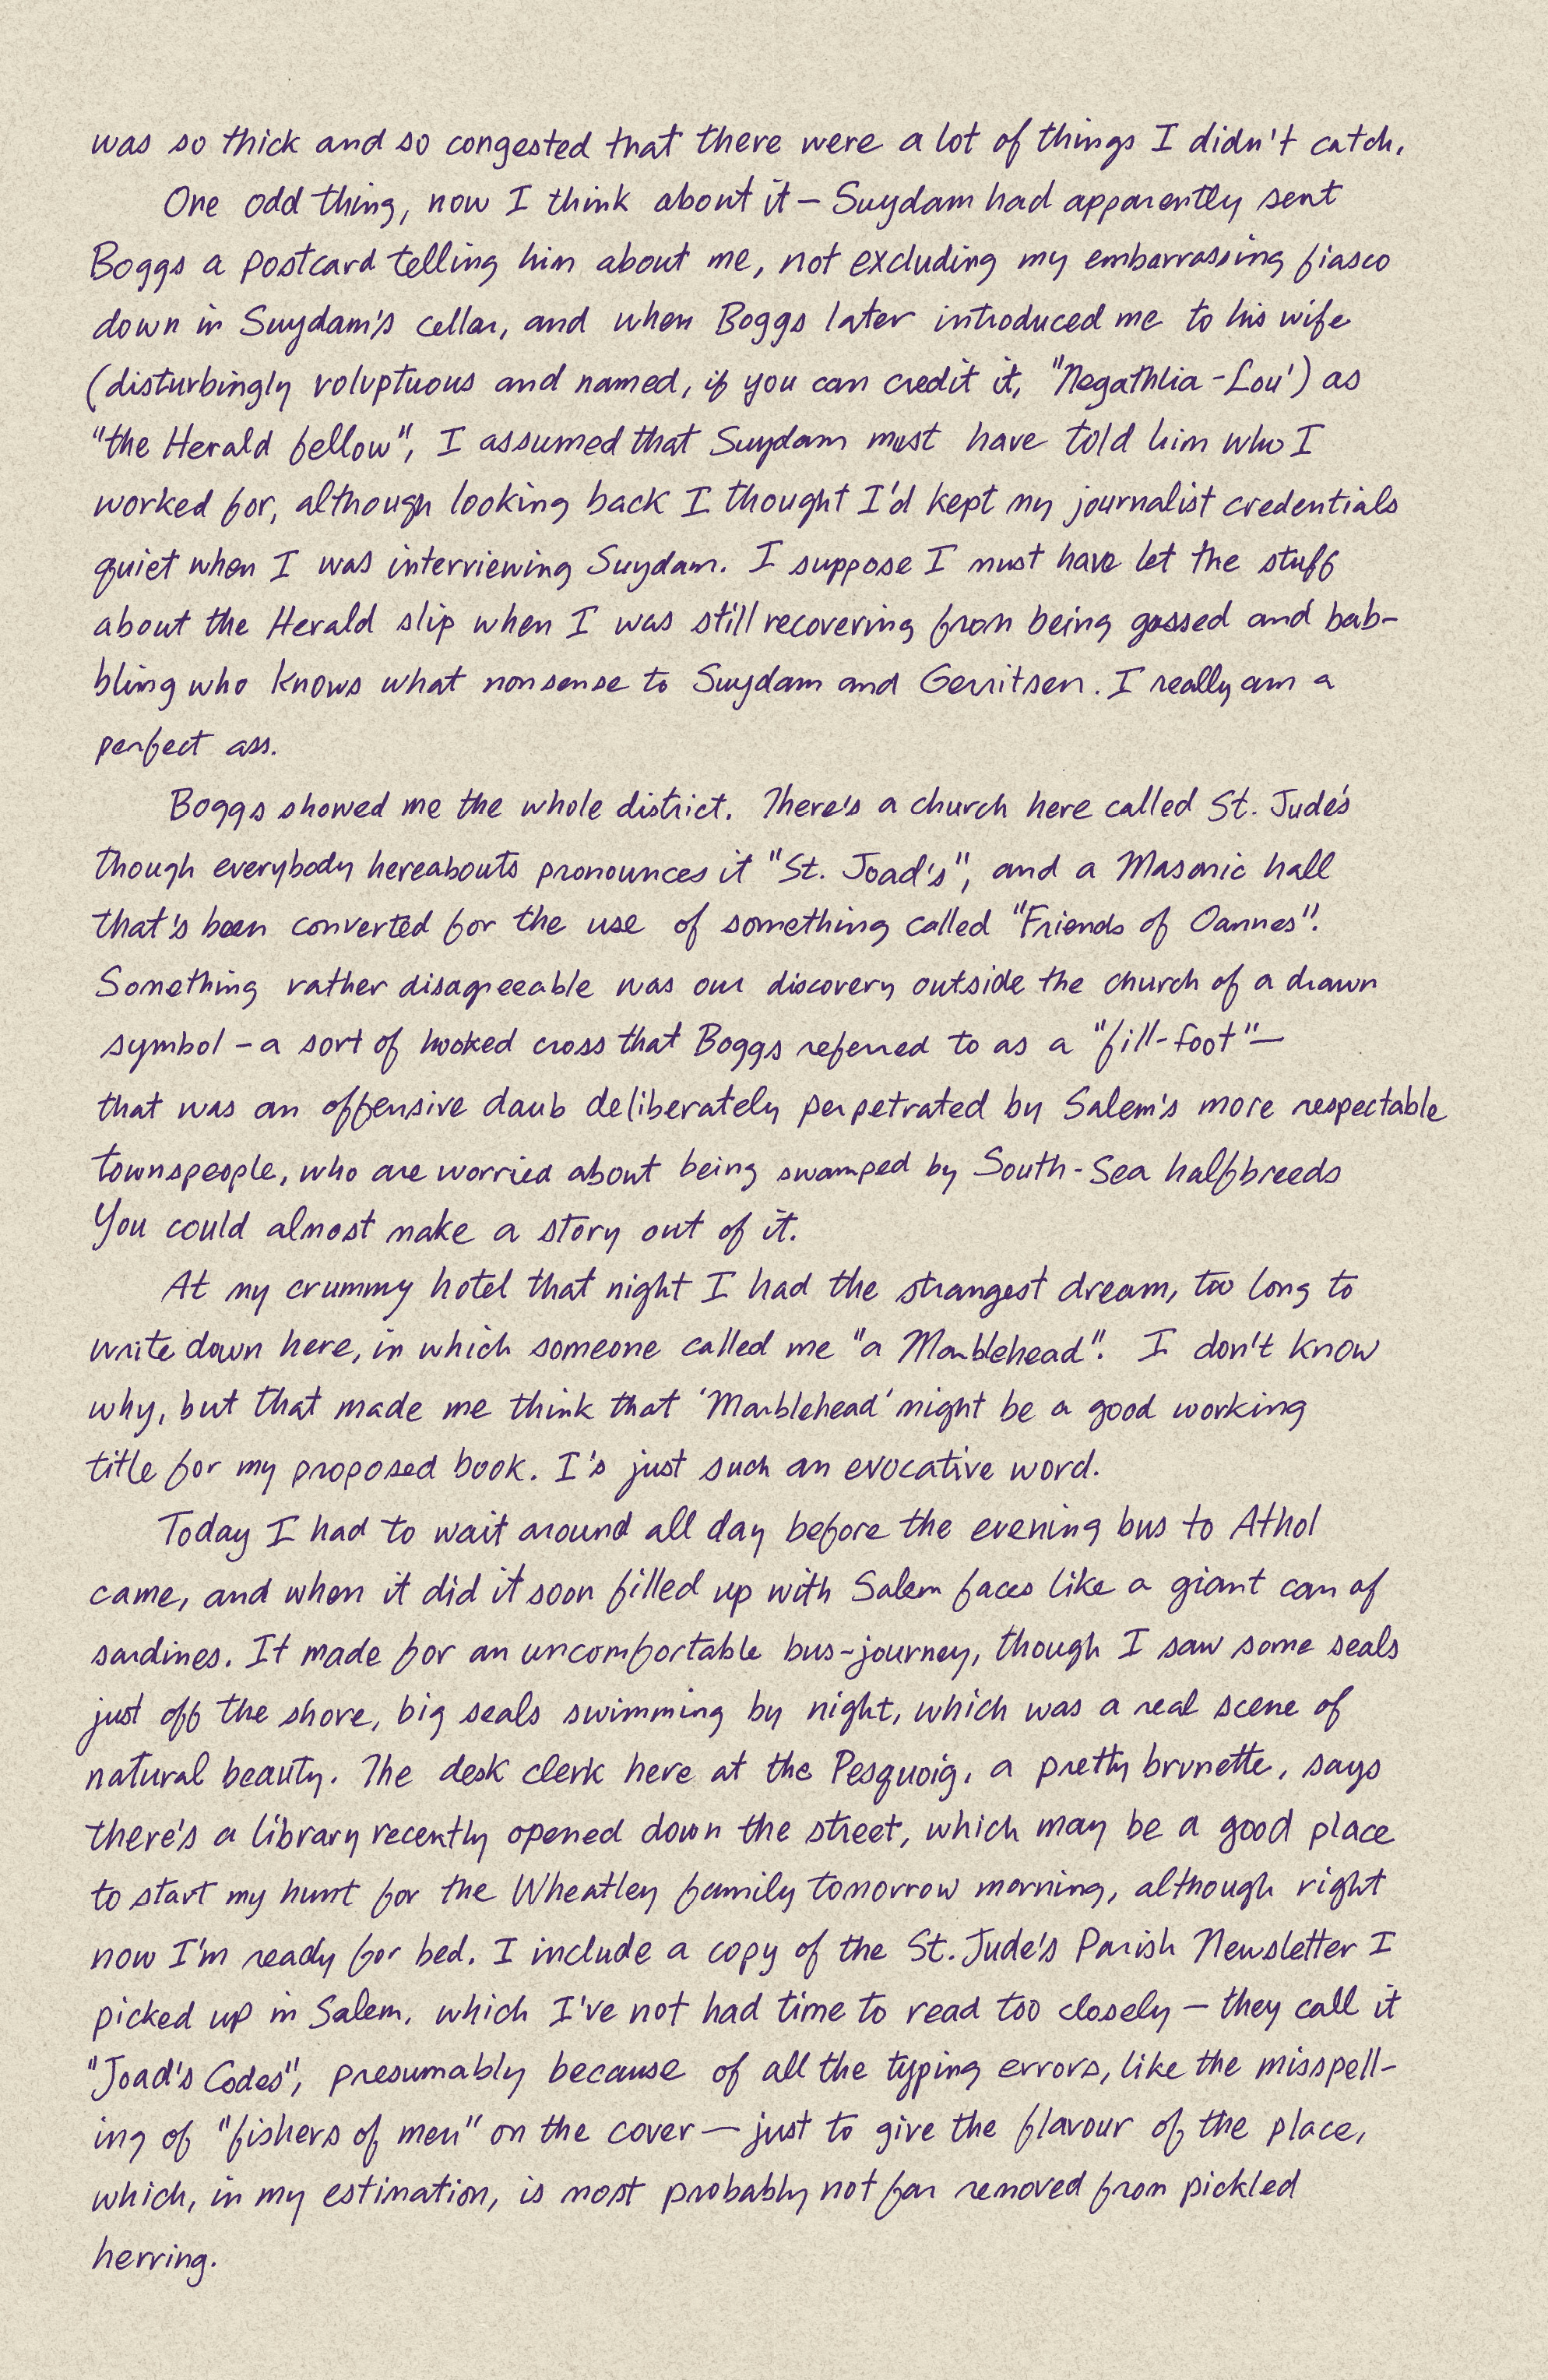 was so thick and so congested that there were a lot of things I didn't catch.
One odd thing, now I think about it – Suydam had apparently sent
Boggs a postcard telling him about me, not excluding my embarrassing fiasco
down in Suydam's cellar, and when Boggs later introduced me to his wife
(disturbingly voluptuous and named, if you can credit it, "Negathlia-Lou') as
"the Herald fellow", I assumed that Suydam must have told him who I
worked for, although looking back I thought I'd kept my journalist credentials
quiet when I was interviewing Suydam. I suppose I must have let the stuff
about the Herald slip when I was still recovering from being gassed and bab-
bling who knows what nonsense to Suydam and Gerritsen. I really am a
perfect ass.
Boggs showed me the whole district. There's a church here called St. Jude's
though everybody hereabouts pronounces it "St. Joad's", and a Masonic hall
that's been converted for the use of something called "Friends of Oannes".
Something rather disagreeable was our discovery outside the church of a drawn
symbol – a sort of hooked cross that Boggs referred to as a "fill-foot" –
that was an offensive daub deliberately perpetrated by Salem's more respectable
townspeople, who are worried about being swamped by South-Sea halfbreeds
You could almost make a story out of it.
At my crummy hotel that night I had the strangest dream, too long to
write down here, in which someone called me "a Marblehead". I don't know
why, but that made me think that 'Marblehead' might be a good working
title for my proposed book. I's just such an evocative word.
Today I had to wait around all day before the evening bus to Athol
came, and when it did it soon filled up with Salem faces like a giant can of
sardines. It made for an uncomfortable bus-journey, though I saw some seals
just off the shore, big seals swimming by night, which was a real scene of
natural beauty. The desk clerk here at the Pesquoig, a pretty brunette, says
there's a library recently opened down the street, which may be a good place
to start my hunt for the Wheatley family tomorrow morning, although right
now I'm ready for bed. I include a copy of the St. Jude's Parish Newsletter I
picked up in Salem, which I've not had time to read too closely – they call it
"Joad's Codes", presumably because of all the typing errors, like the misspell-
ing of "fishers of men" on the cover – just to give the flavour of the place,
which, in my estimation, is most probably not far removed from pickled
herring.